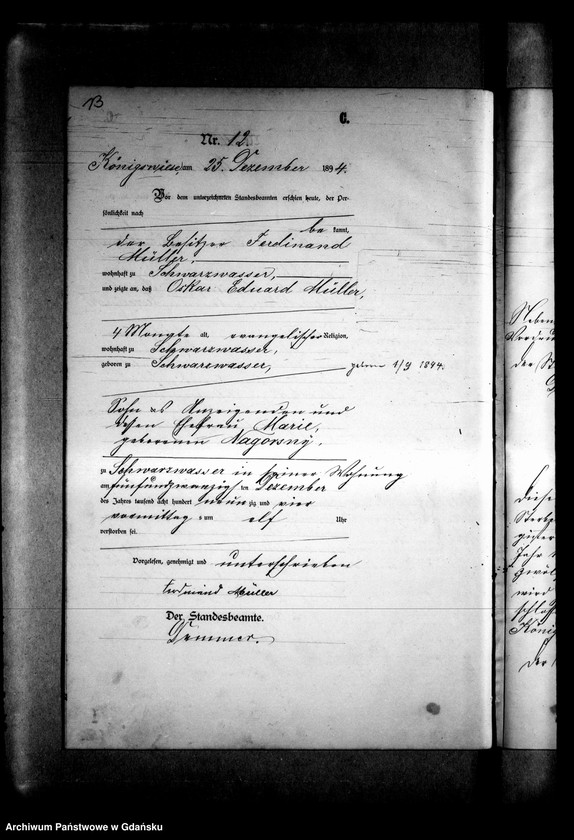 B
C.
Nr. 12
Königswiese am 25. Dezember 1894.
Vor dem unterzeichneten Standesbeamten erschien heute, der Per-
sönlichkeit nach
be kannt,
der Besitzer Ferdinand
Müller,
wohnhaft zu Schwarzwasser,
und zeigte an, daß Oskar Eduard Müller,
4 Monate alt, evangelischer Religion,
wohnhaft zu Schwarzwasser,
geboren zu Schwarzwasser, geboren 1/9 1894.
Sohn des Anzeigenden und
dessen Ehefrau Marie,
geborenen Nagorsny,
zu Schwarzwasser in seiner Wohnung
am fünfundzwanzigsten Dezember
des Jahres tausend acht hundert neunzig und vier
vormittags um elf Uhr
verstorben sei.
Vorgelesen, genehmigt und unterschrieben
Ferdinand Müller
Der Standesbeamte.
Demmer.
Neben
der St
Diese
Sterbe
Jahr
zwöl
wird
König
der
Archiwum Państwowe w Gdańsku